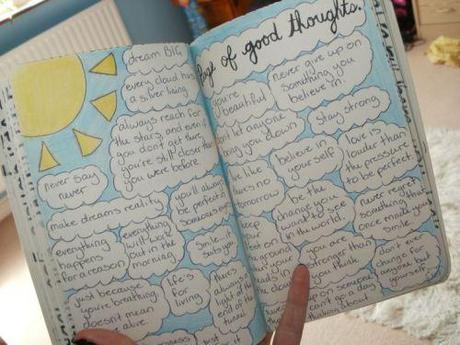 dream BIG
every cloud has
a silver lining
always reach for
the stars, and even if
you don't get there
you're still closer than
you were before.
never say
never
make dreams reality
you'll always
be perfect to
someone
everything
happens
for a reason
everything
will work
out in the
morning
Smile, it
suits you
just because
you're breathing
doesn't mean
alive
life's
for
living
there's
always a
light at the
end of the
tunnel
Page of good thoughts.
you're
beautiful
never give up on
something you
believe in.
let anyone
bring you down
stay strong
believe in
yourself
love is
louder than
the pressure
to be perfect.
live like
there's no
tomorrow
be the
change you
want to see
in the world.
never regret
something that
once made you
smile.
keep
feet on the
ground
your
heads in
the clouds
you are
stronger than
you think.
don't ever
change for
anyone but
yourself.
up on someone
can't go a day
thinking about